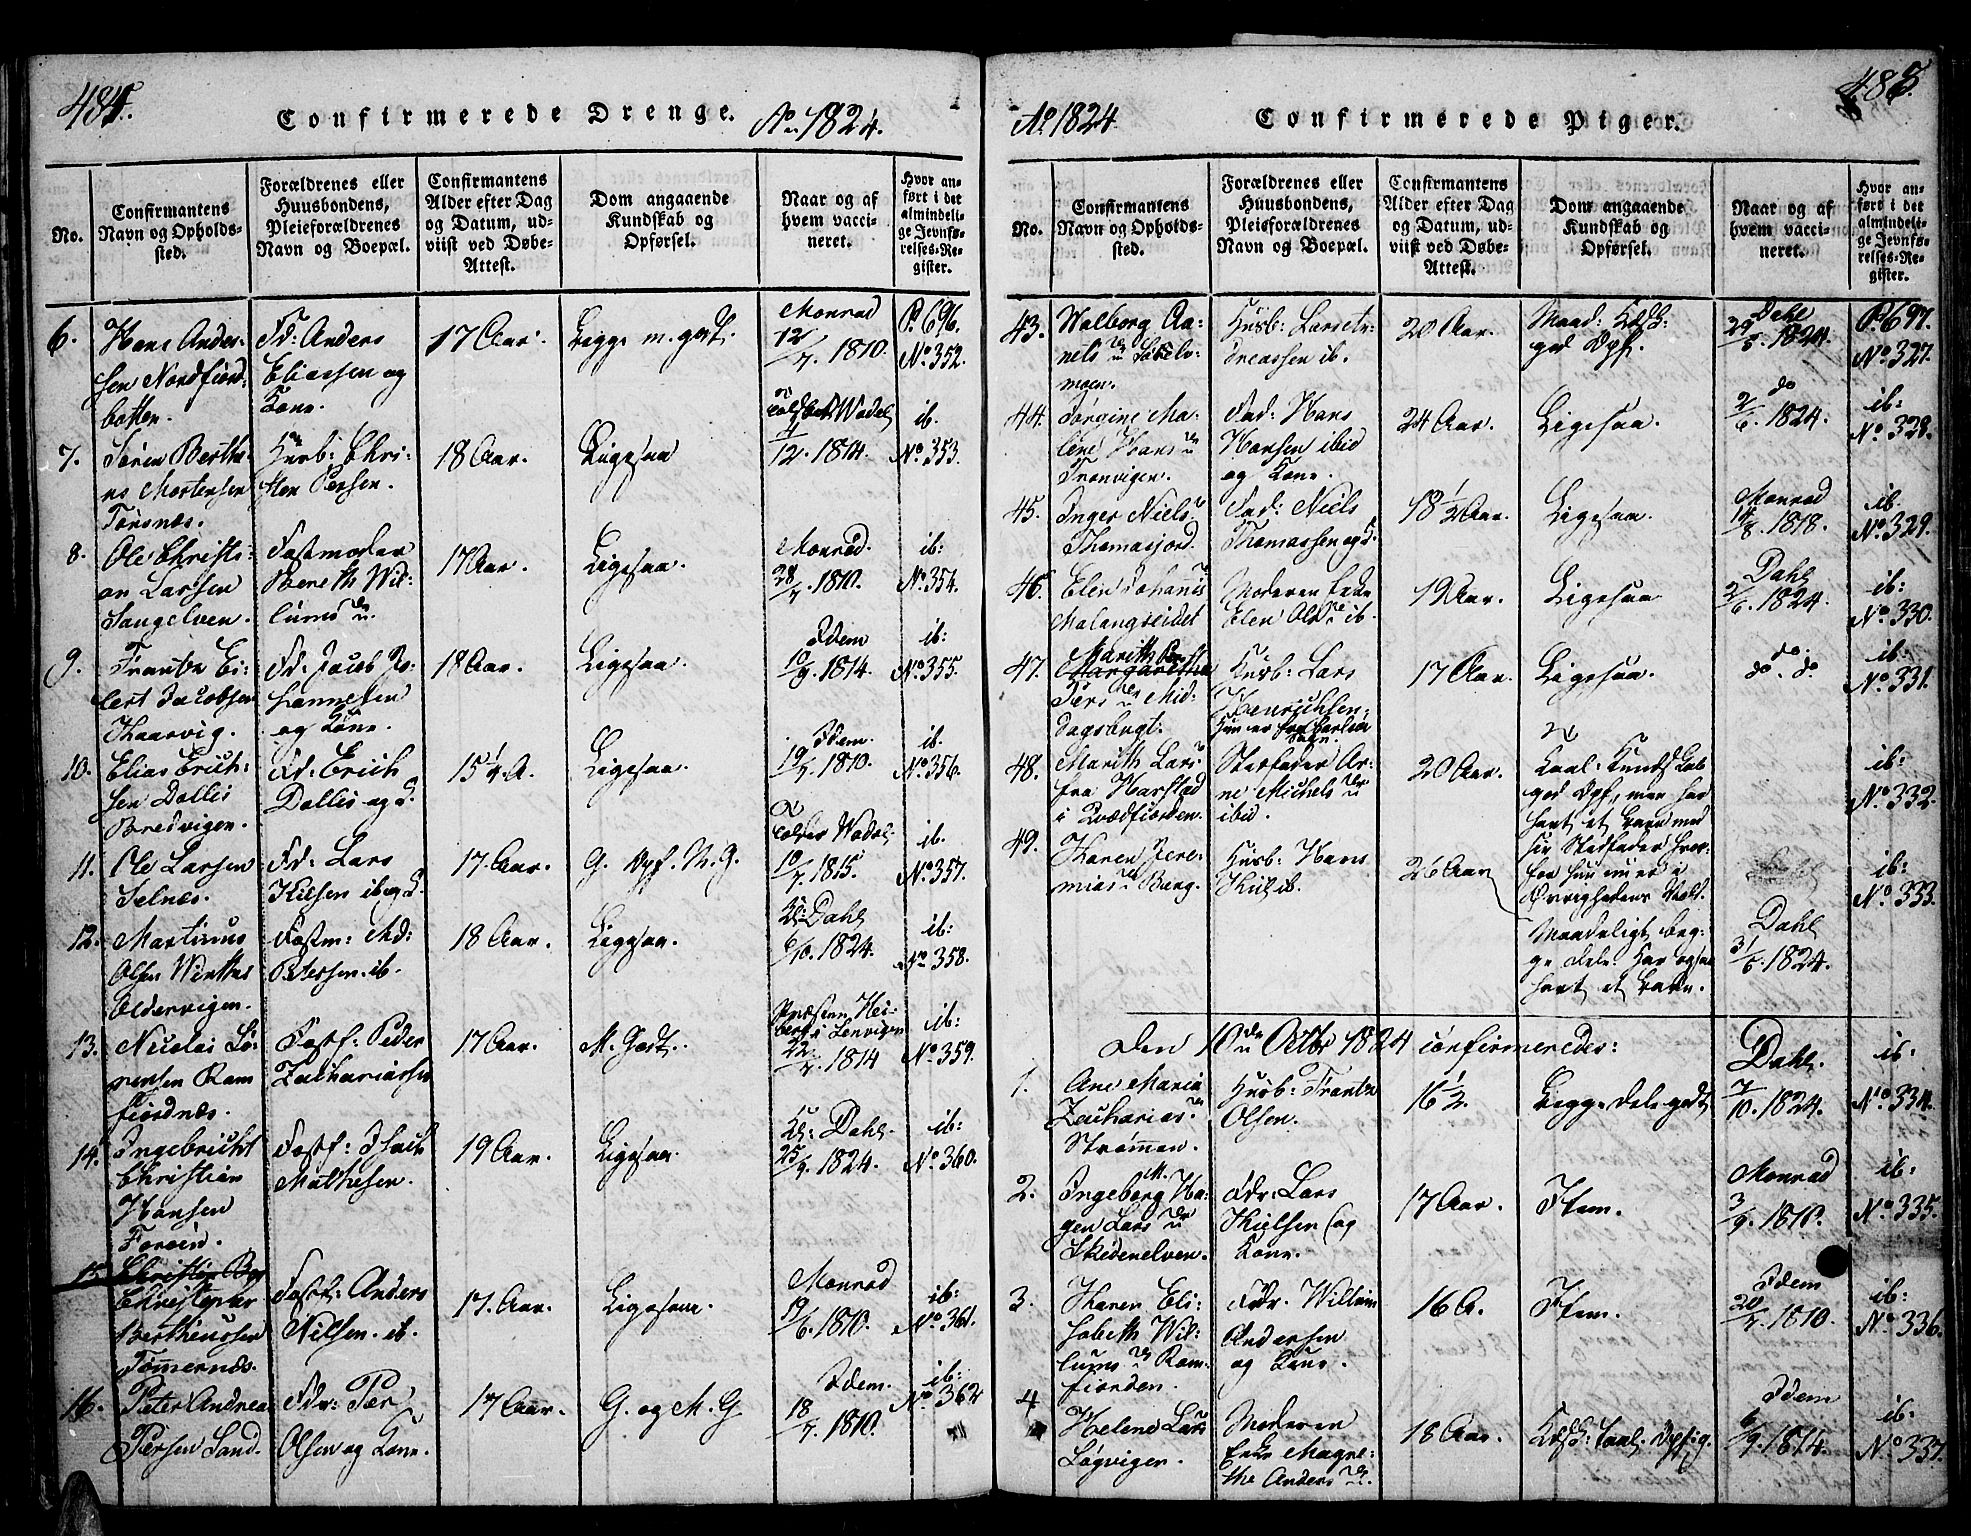 484.
Confirmerede Drenge.
No. 1824.
No.
Confirmantens
Navn og Opholds-
sted.
Forældrenes eller
Huusbondens,
Pleieforældrenes
Navn og Boepæl.
Confirmantens
Alder efter Dag
og Datum, ud-
viist ved Døbe-
Attest.
Dom angaaende
Kundskab og
Opførsel.
Naar og af
hvem vacci-
neret.
Hvor an-
ført i det
almindeli-
ge Jevnfø-
relses-Re-
gister.
6.
Hans Ander-
sen Nordfiord-
botten.
Fd: Anders
Eliassen og
Kone.
17 Aar.
Begge m. godt.
Monrad
12/7. 1810.
P. 696.
No. 352.
7.
Søren Berthe-
us Mortensen
Tørsnæs.
Husb: Chri-
sten Persen.
18 Aar.
Ligesaa
Wadel
12. 1814.
ib.
No. 353.
8.
Ole Christi-
an Larsen
Sangelven.
Fostmoder
Bereth Wil-
lums
17 Aar.
Ligesaa.
Monrad.
28/7. 1810.
ib:
No. 354.
9.
Frantz Ei-
lert Jacobsen
Haarvig.
Fd: Jacob Jo-
hannesen
og Kone.
18 Aar.
Ligesaa.
Idem
10/9. 1814.
ib:
No. 355.
10.
Elias Erich-
sen Dallis
Bredvigen.
Fd: Erich
Dallis og
15¼ A.
Ligesaa.
Idem.
19/7. 1810.
ib.
No. 356.
11.
Ole Larsen
Selnæs.
Fd: Lars
Kielsen ib og
17. Aar.
G. Opf. M. G.
Wadel
10/7. 1815.
ib.
No. 357.
12.
Martinus
Olsen Winther
Oldervigen.
Fostm: Md:
Petersen. ib.
18 Aar.
Ligesaa.
Kl: Dahl
6/10. 1824.
ib:
No. 358.
13.
Nicolai Sø-
rensen Ram-
fiordnæs.
Fostf: Peder
Zachariassen
17 Aar.
M. Godt.
Hei-
berg i Lenvigen
22/7. 1814
ib:
No. 359.
14.
Ingebricht
Christian
Hansen
Forøen.
Fostf: Isach
Mathesen.
19 Aar.
Ligesaa.
Kl: Dahl.
25/9. 1824.
ib:
No. 360.
15.
Christopher
Bertheussen
Tømernæs.
Fostf: Anders
Nilsen. ib.
17. Aar.
Ligesaa.
Monrad
19/6. 1810.
ib:
No. 361.
16.
Peter Andreas
Persen Sand.
Fdr: Per
Olsen og Kone.
17 Aar.
G. og M. G
Idem.
18/7. 1810.
ib:
No. 362
485.
No. 1824.
Confirmerede Piger.
No.
Confirmantens
Navn og Opholds-
sted.
Forældrenes eller
Huusbondens,
Pleisforældrenes
Navn og Boepæl.
Confirmantens
Alder efter Dag
og Datum, ud-
viist ved Døbe-
Attest.
Dom angaaende
Kundskab og
Opførsel.
Naar og af
hvem vacci-
neret.
Hvor an-
ført i det
almindeli-
ge Jevnfø-
relses-Re-
gister.
43.
Walborg Aa-
nels
moen.
Husb: Lars
dreassen ib.
20 Aar.
Maad: Kdsk:
god Opf.
Dahl
29/5. 1824.
P. 697.
No. 327.
44.
Jørgine Ma-
lene Hans
Tronvigen.
Fad: Hans
Hansen ibid
og Kone.
24 Aar.
Ligesaa.
do
2/6. 1824.
ib:
No. 328.
45.
Inger Niels
Thomasjord.
Fad: Niels
Thomassen og
18½ Aar.
Ligesaa.
Monrad
14/8. 1818.
ib.
No. 329.
46.
Elen Johannis
Malangseidet
Moderen Enke
Elen Ols ib.
19 Aar.
Ligesaa
Dahl
2/6. 1824.
ib:
No. 330.
47.
Marith
Pers Mid-
dagsbugt.
Husb: Lars
Henrichsen.
Hun er fra
Sogn.
17 Aar.
Ligesaa.
do.
do. do.
ib.
No. 331.
48.
Marith Lars
fra Harstad
i Qvædfiorden.
Stedfader Ar-
ne Michels
ibid.
20 Aar.
Taal: Kundskab
god Opf, men har
havt et Barn med
sin Stedfader hvor-
for hun nu er i
Øvrighedens Vold.
ib:
No. 332.
49.
Karen Jere-
mias Berg.
Husb: Hans
Kiil ib.
26 Aar
Maadeligt beg-
ge dele. Har ogsaa
havt et Barn.
Dahl
31/5. 1824.
ib:
No. 333.
Den 10de Octbr 1824 confirmeredes:
1.
Ane Maria
Zacharias
Strømmen.
Husb: Frantz
Olsen.
16½.
Begge dele godt
Dahl.
7/10. 1824.
ib:
No. 334.
2.
Ingeborg M. Ha-
gen Lars
Skidenelven.
Fdr: Lars
Kielsen og
Kone.
17 Aar.
Item.
Monrad
3/9. 1818.
ib:
No. 335.
3.
Karen Eli-
sabeth Wil-
lums Ram-
fiorden.
Fdr. Willum
Andersen
og Kone.
16 A.
Item.
Idem
20/7. 1810.
ib:
No. 336.
4
Helene Lars
Løgvigen.
Moderen
Enke Magre-
the Anders
18 Aar.
Kdsk: taal. Opf: g.
Idem
6/9. 1814.
ib:
No. 337.